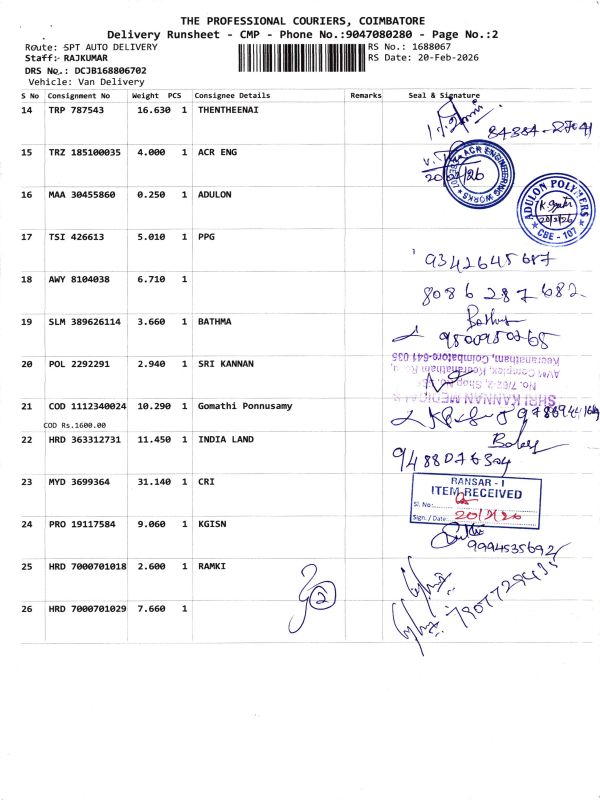 THE PROFESSIONAL COURIERS, COIMBATORE
Delivery Runsheet - CMP - Phone No.:9047080280 - Page No.:2
Route: SPT AUTO DELIVERY
RS No.: 1688067
Staff: RAJKUMAR
RS Date: 20-Feb-2026
DRS No.: DCJB168806702
Vehicle: Van Delivery
S No Consignment No Weight PCS Consignee Details Remarks Seal & Signature
14 TRP 787543 16.630 1 THENTHEENAI
84384-27041
15 TRZ 185100035 4.000 1 ACR ENG
ACR ENGINEERING WORKS
16 MAA 30455860 0.250 1 ADULON
ADULON POLYMERS
20/2/26
CBE - 107
17 TSI 426613 5.010 1 PPG
9342645687
18 AWY 8104038 6.710 1
8086 287 682
19 SLM 389626114 3.660 1 BATHMA
9500950765
20 POL 2292291 2.940 1 SRI KANNAN
SHRI KANNAN MEDICALS
AVM Complex, Keeranatham
Keeranatham, Coimbatore-641 035
21 COD 1112340024 10.290 1 Gomathi Ponnusamy
COD Rs.1600.00
22 HRD 363312731 11.450 1 INDIA LAND
9488076304
23 MYD 3699364 31.140 1 CRI
RANSAR - I
ITEM RECEIVED
Sl. No:
Sign. / Date: 20/2/26
24 PRO 19117584 9.060 1 KGISN
9994535692
25 HRD 7000701018 2.600 1 RAMKI
2
26 HRD 7000701029 7.660 1